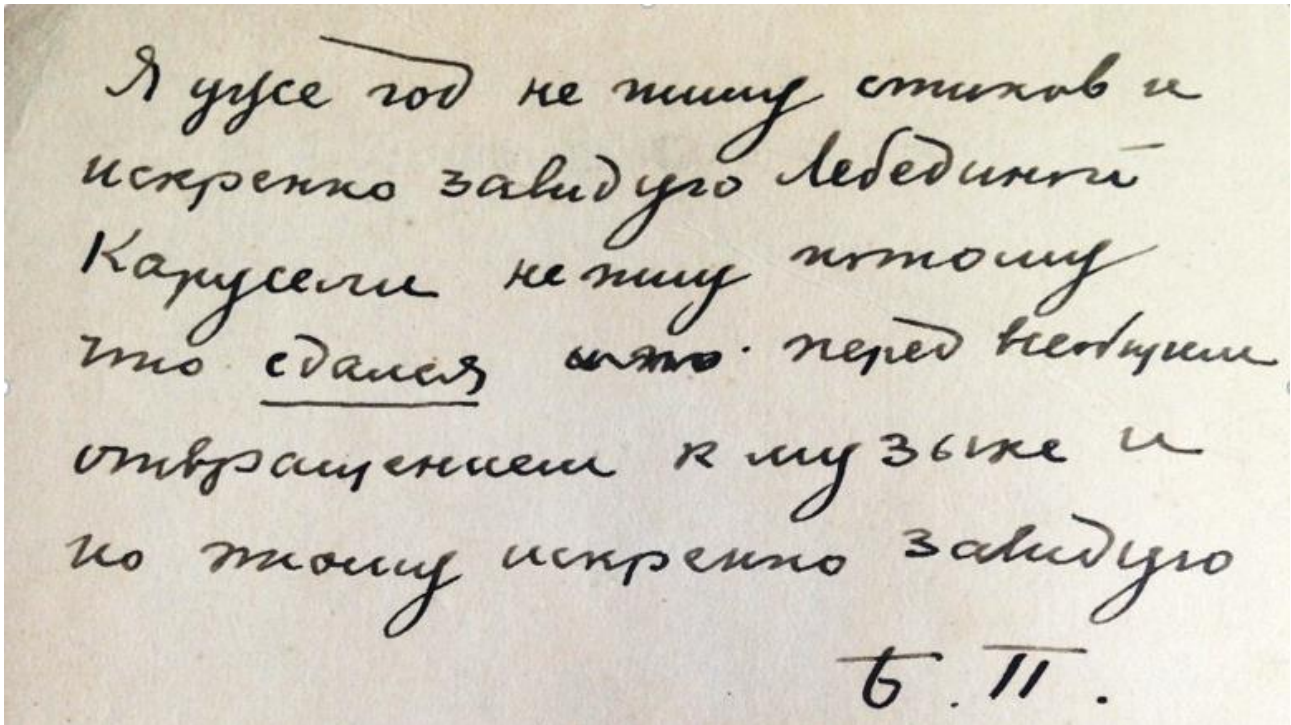 Я уже год не пишу стихов и
искренно завидую Лебединой
Карусели не пишу потому
что сдался перед всеобщим
отвращением к музыке и
по этому искренно завидую
Б. П.